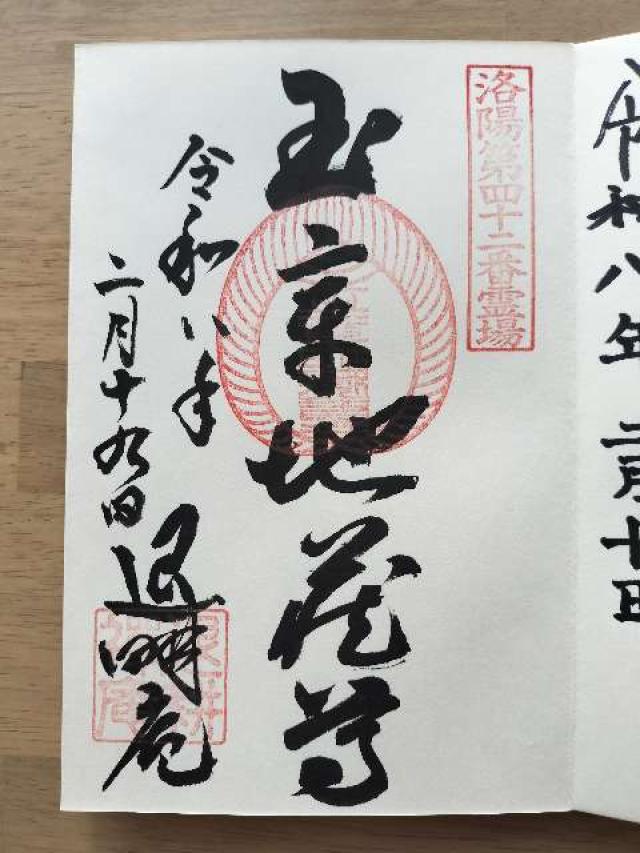 令和八年二月十日
洛陽第四十二番霊場
玉章地蔵尊
令和八年
二月十九日
退耕庵